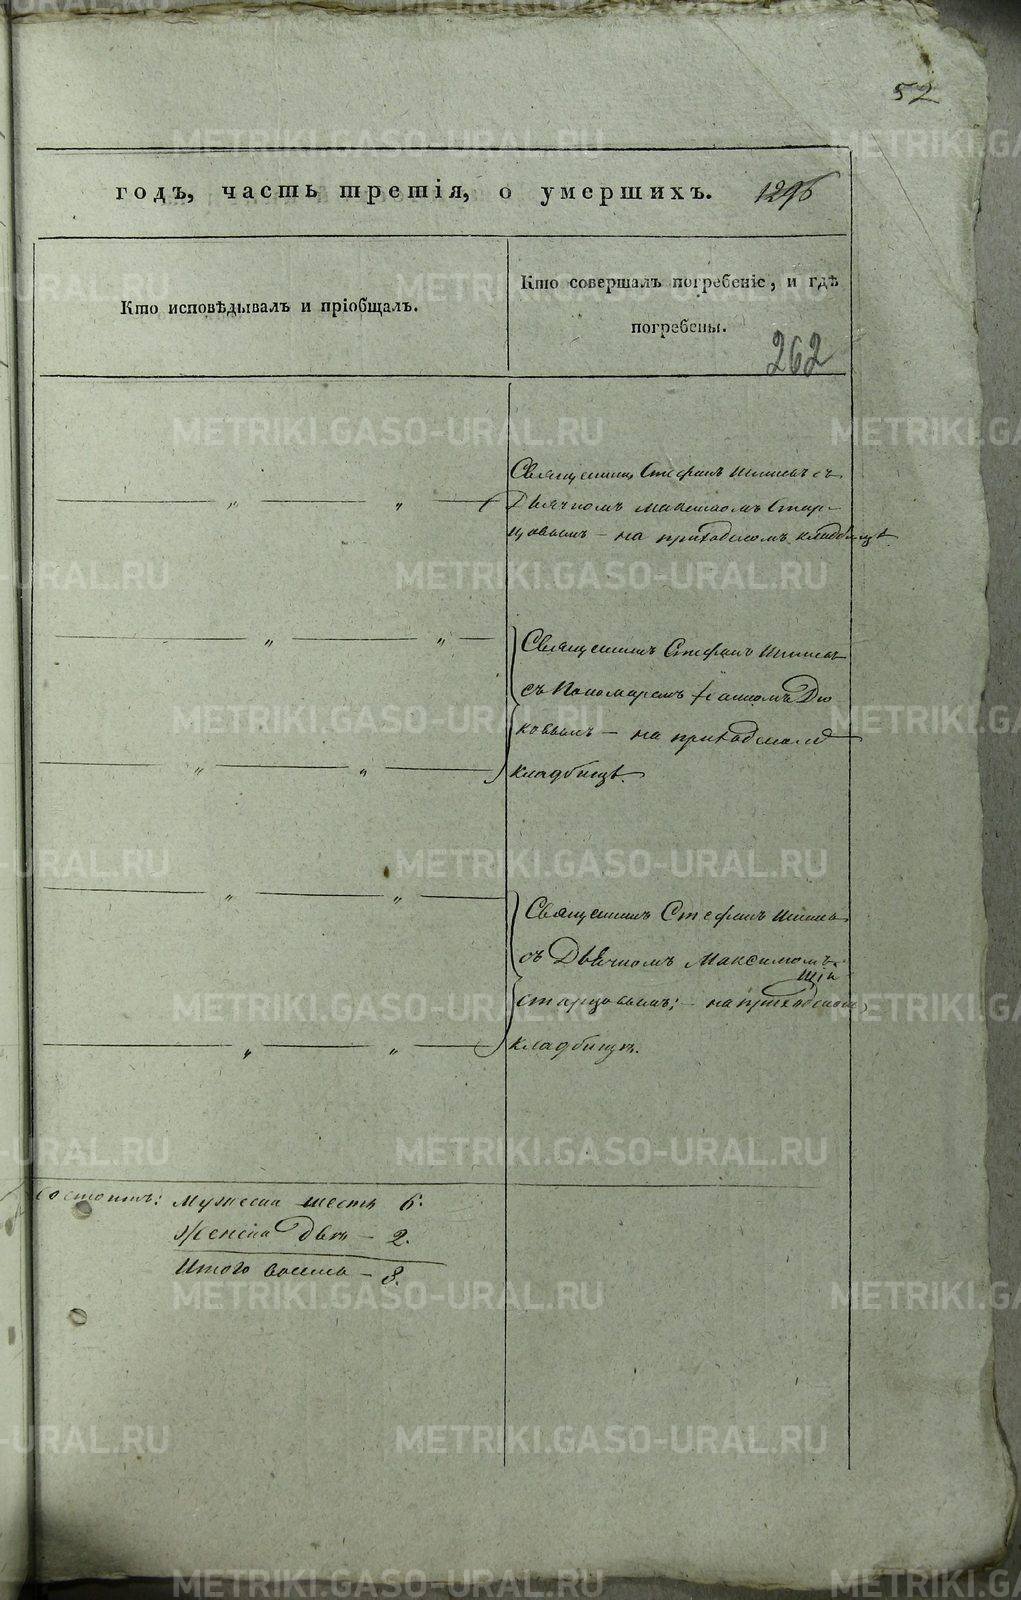 52
годъ, часть третія, о умершихъ. 1296
Кто исповѣдывалъ и пріобщалъ.
Кто совершалъ погребеніе, и гдѣ
погребены.
262
Священникъ Стефанъ съ
Дьячкомъ Максимомъ Стар-
цовымъ — на приходскомъ кладбищѣ
Священникъ Стефанъ
съ Пономаремъ
ковымъ — на приходскомъ
кладбищѣ.
Священникъ Стефанъ
съ Дьячкомъ Максимомъ
Старцовымъ; — на приходскомъ
кладбищѣ.
Состоитъ: мужеска шесть 6.
женска двѣ — 2.
Итого восемь — 8.
METRIKI.GASO-URAL.RU